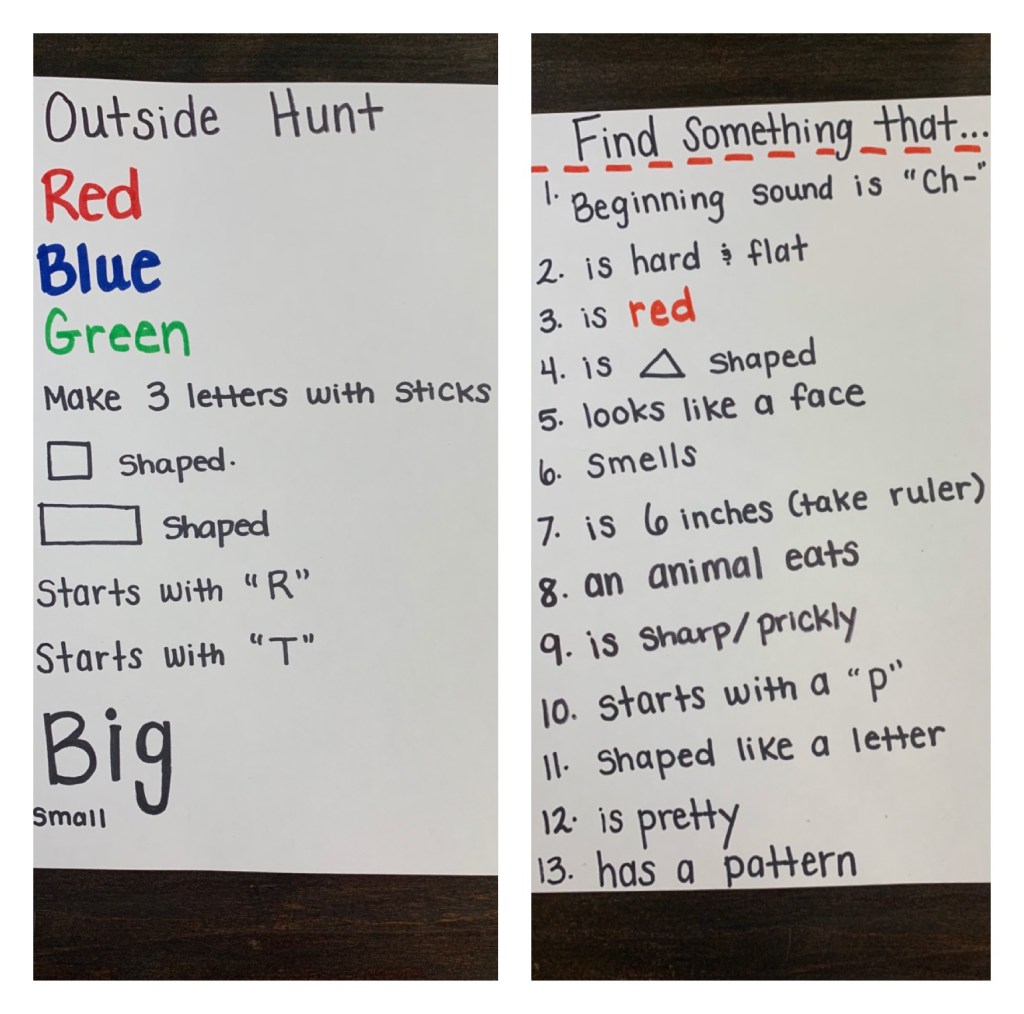 Outside Hunt
Red
Blue
Green
Make 3 letters with sticks
shaped.
shaped
Starts with "R"
Starts with "T"
Big
small
Find something that...
1. Beginning sound is "Ch-"
2. is hard & flat
3. is red
4. is △ shaped
5. looks like a face
6. smells
7. is 6 inches (take ruler)
8. an animal eats
9. is sharp/prickly
10. starts with a "p"
11. shaped like a letter
12. is pretty
13. has a pattern